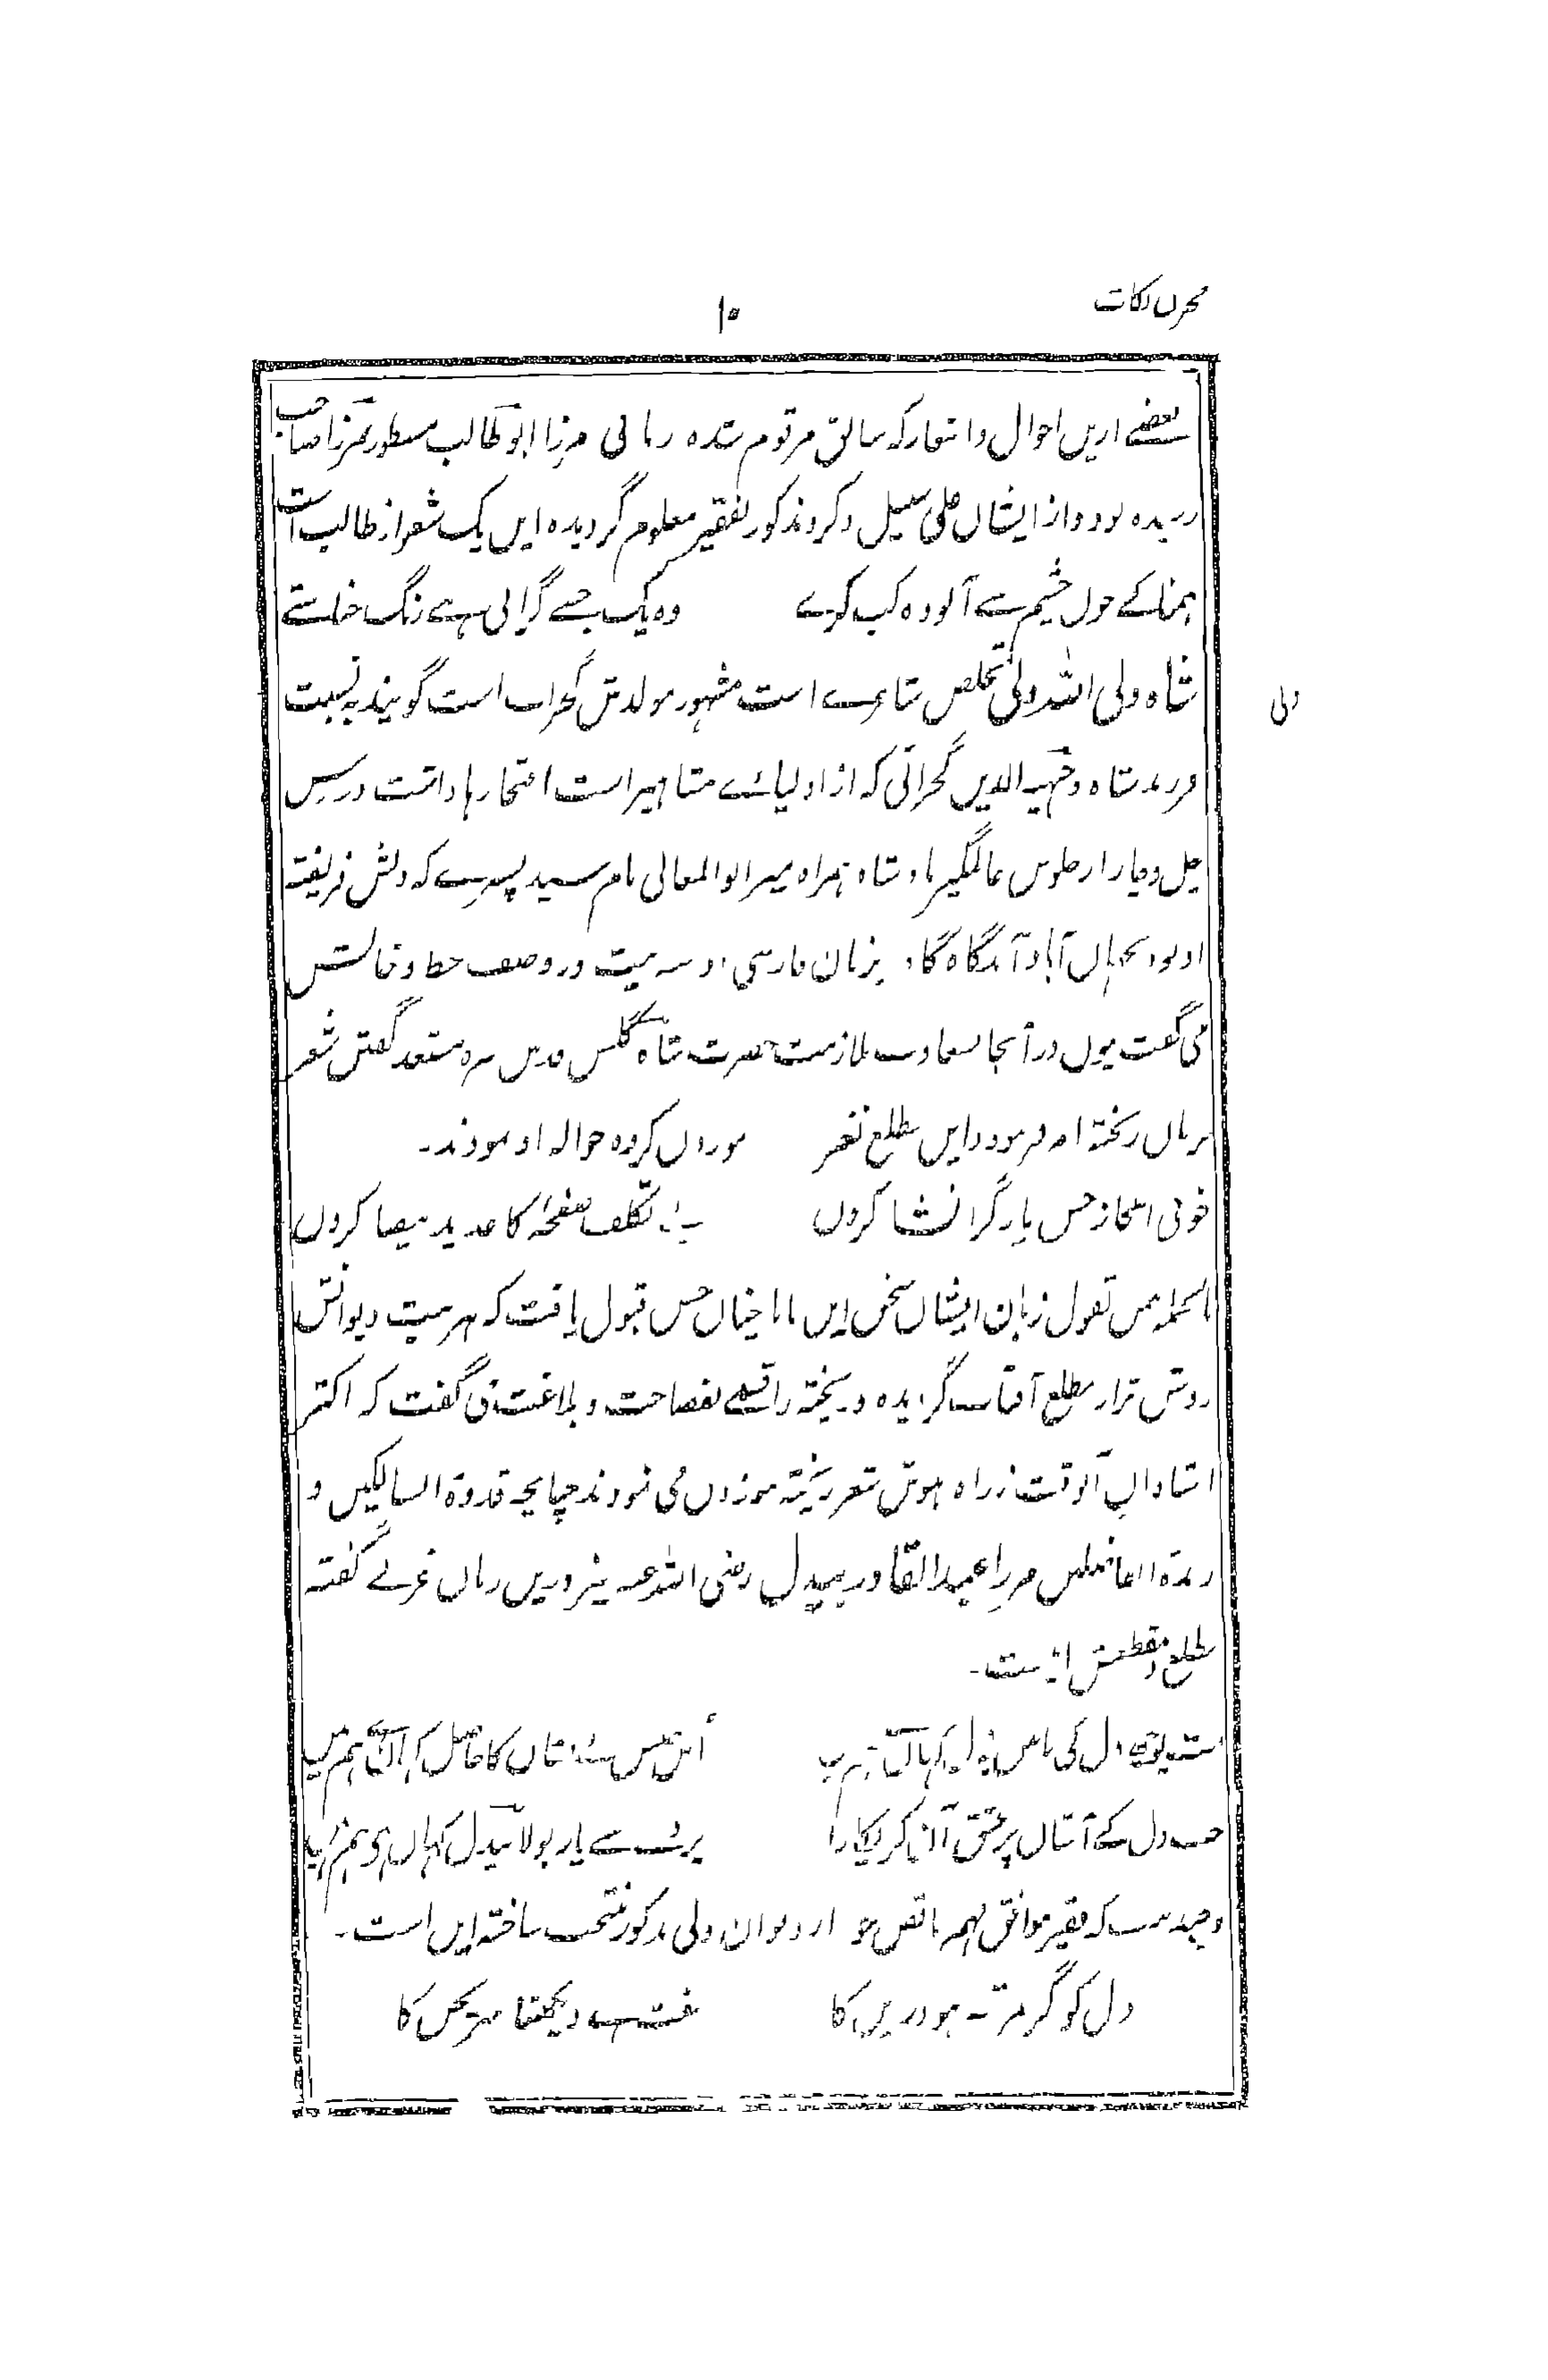 مخزن نکات
۱۰
بعضے ازیں احوال و اشعار کہ سابق مرقوم شدہ زبانی مرزا ابو طالب مسطور بمرزا صاحب
رسیدہ بود و از ایشاں علیٰ سبیل ذکر و مذکور بفقیر معلوم گردیدہ ایں یک شعر از طالب است
ہمنا کے خوں چشم سے آلودہ کب کرے وہ یک جسے گرانی ہے رنگ حنا ستے
شاہ ولی اللہ ولی تخلص شاعرے است مشہور مولدش گجرات است گویند بہ نسبت
ولی
فرزند شاہ وجیہہ الدین گجراتی کہ از اولیائے مشاہیر است افتخارہا داشت در سن
چہل و چار از جلوس عالمگیر بادشاہ ہمراہ میر ابو المعالی نام سید پسرے کہ دلش فریفتہ
او بود بجہاں آباد آمد گاہ گاہ بزبان فارسی دو سہ بیت در وصف خط و خالش
می گفت چوں در آنجا بسعادت ملازمت حضرت شاہ گلشن قدس سرہ مستعد گفتن شعر
بزباں ریختہ امر فرمودند ایں مطلع نغر موزوں کردہ حوالہ او نمودند۔
خوبی اعجاز حسن یار گر انشا کروں بے تکلف صفحۂ کاغذ ید بیضا کروں
بالجملہ بیمن قبول زبان ایشاں سخن ایں بابا چناں حسن قبول یافت کہ ہر بیت دیوانش
روشن تر از مطلع آفتاب گردیدہ و ریختہ را قسمے بفصاحت و بلاغت می گفت کہ اکثر
استاداں آں وقت از راہ ہوش شعر ریختہ موزوں می نمودند چنانچہ قدوۃ السالکین و
زبدۃ الفاضلین مرزا عبد القادر بیدل رضی اللہ عنہ نیز دریں زباں غزلے گفتہ
مطلع و مقطعش اینست۔
مت پوچھ دل کی باتیں وہ دل کہاں ہے ہم میں اس تخم بے نشاں کا حاصل کہاں ہے ہم میں
جب دل کے آستاں پر عشق آن کر پکارا پردے سے یار بولا بیدل کہاں ہے ہم میں
و چند بیت کہ فقیر موافق فہم ناقص خود از دیوان ولی مذکور منتخب ساختہ ایں است۔
دل کو گر مرتبہ ہو درپن کا مفت ہے دیکھنا سریجن کا